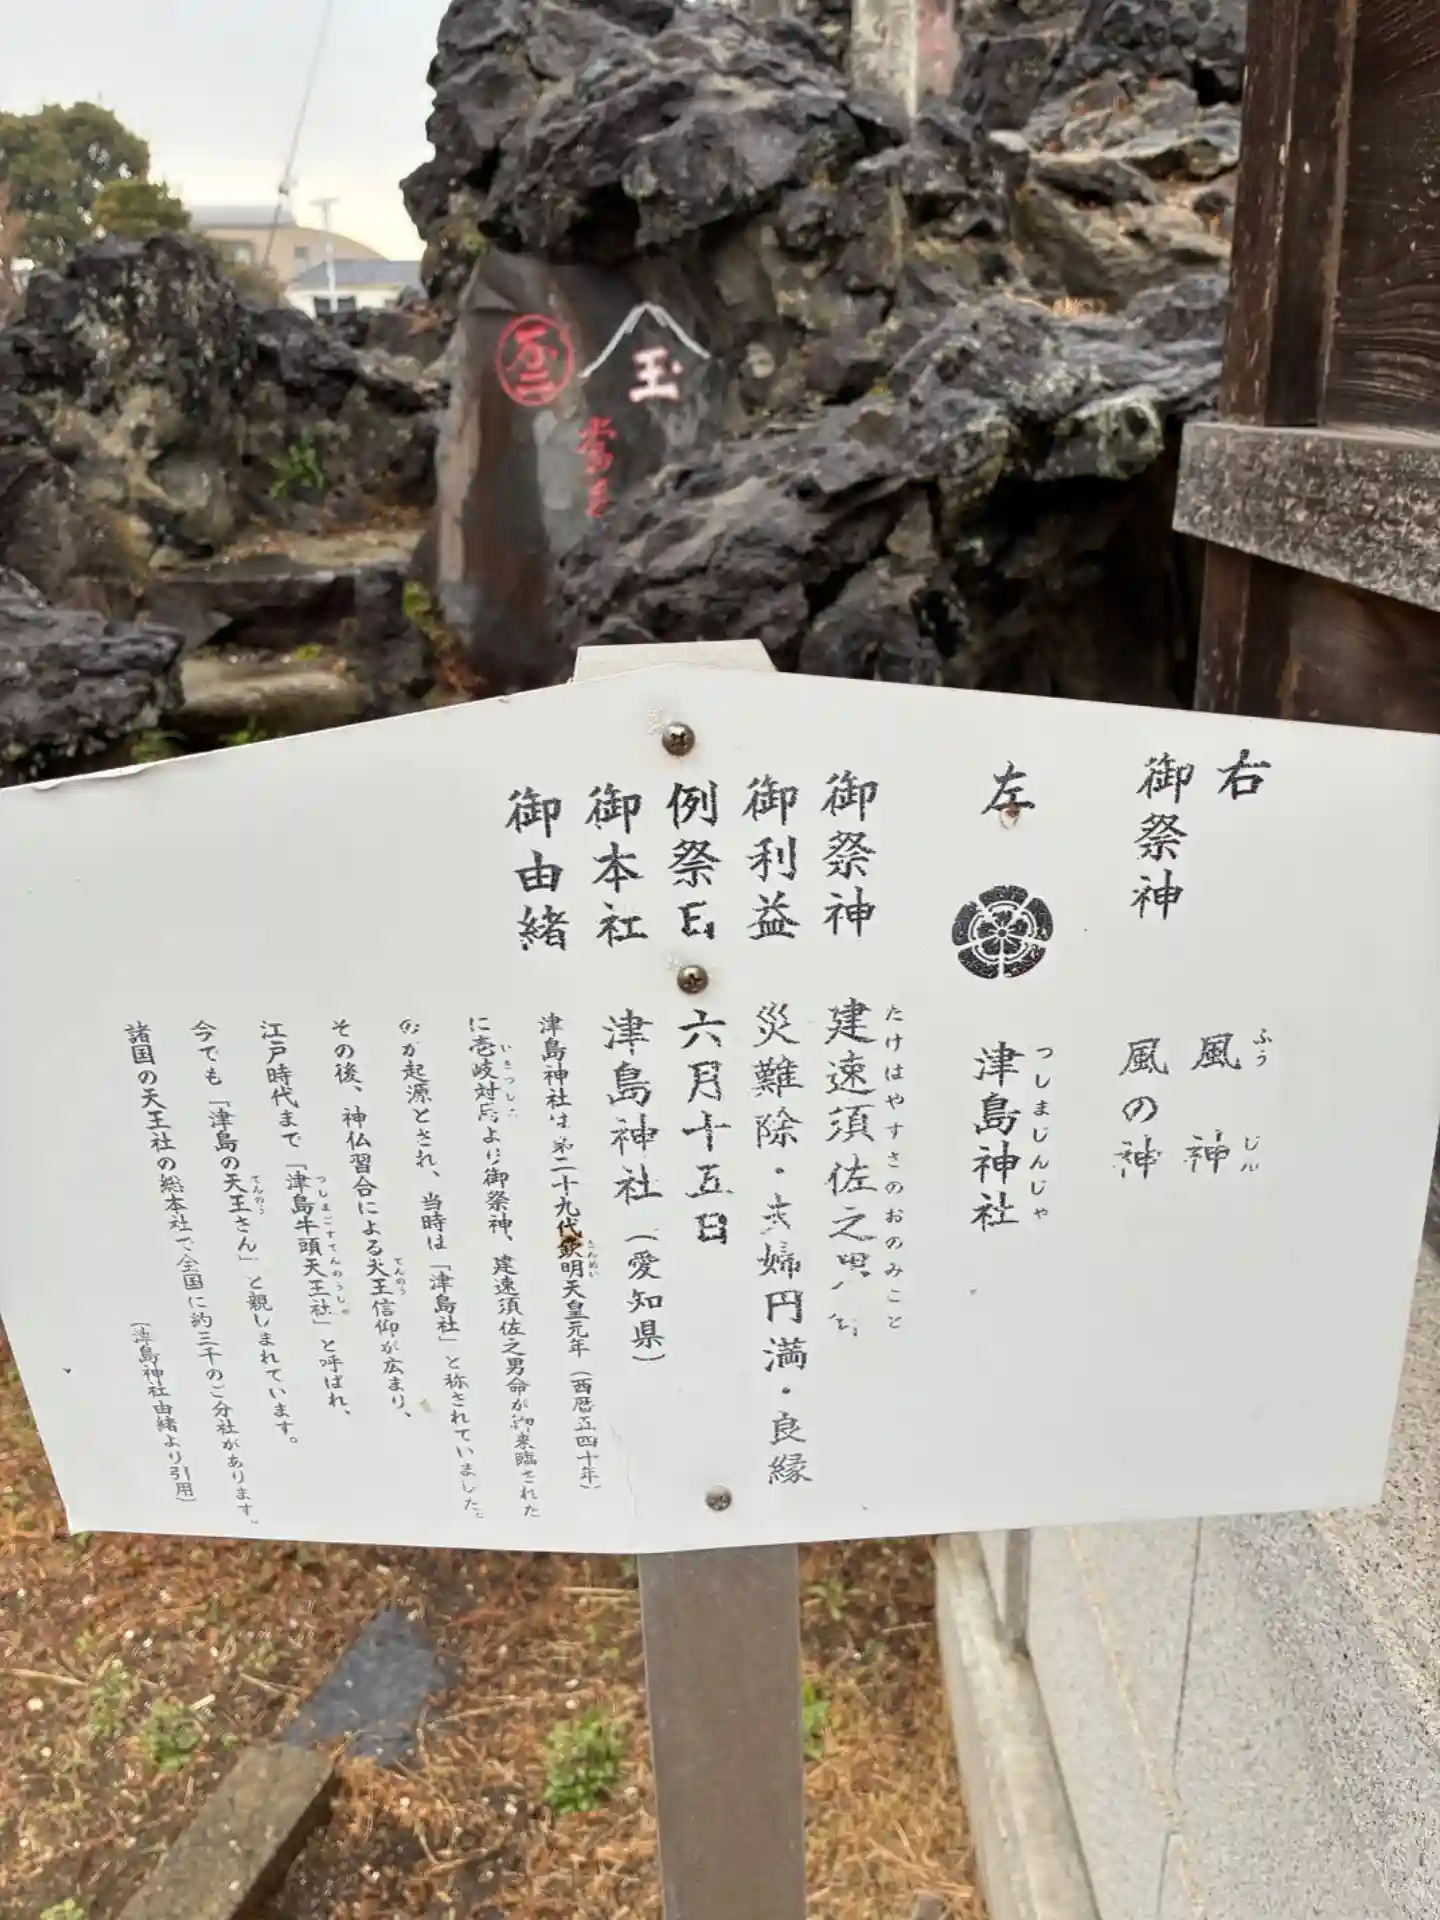 右
風神
ふう じん
御祭神
風の神
左
津島神社
つしまじんじゃ
御祭神
建速須佐之男命
たけはやすさのおのみこと
御利益
災難除・夫婦円満・良縁
例祭日
六月十五日
御本社
津島神社(愛知県)
御由緒
津島神社は第二十九代欽明天皇元年(西暦五四十年)
きんめい
に壱岐対馬より御祭神、建速須佐之男命が御来臨された
いきつしま
のが起源とされ、当時は「津島社」と称されていました。
その後、神仏習合による天王信仰が広まり、
てんのう
江戸時代まで「津島牛頭天王社」と呼ばれ、
つしまごずてんのうしゃ
今でも「津島の天王さん」と親しまれています。
てんのう
諸国の天王社の総本社で全国に約三千のご分社があります。
(津島神社由緒より引用)
玉